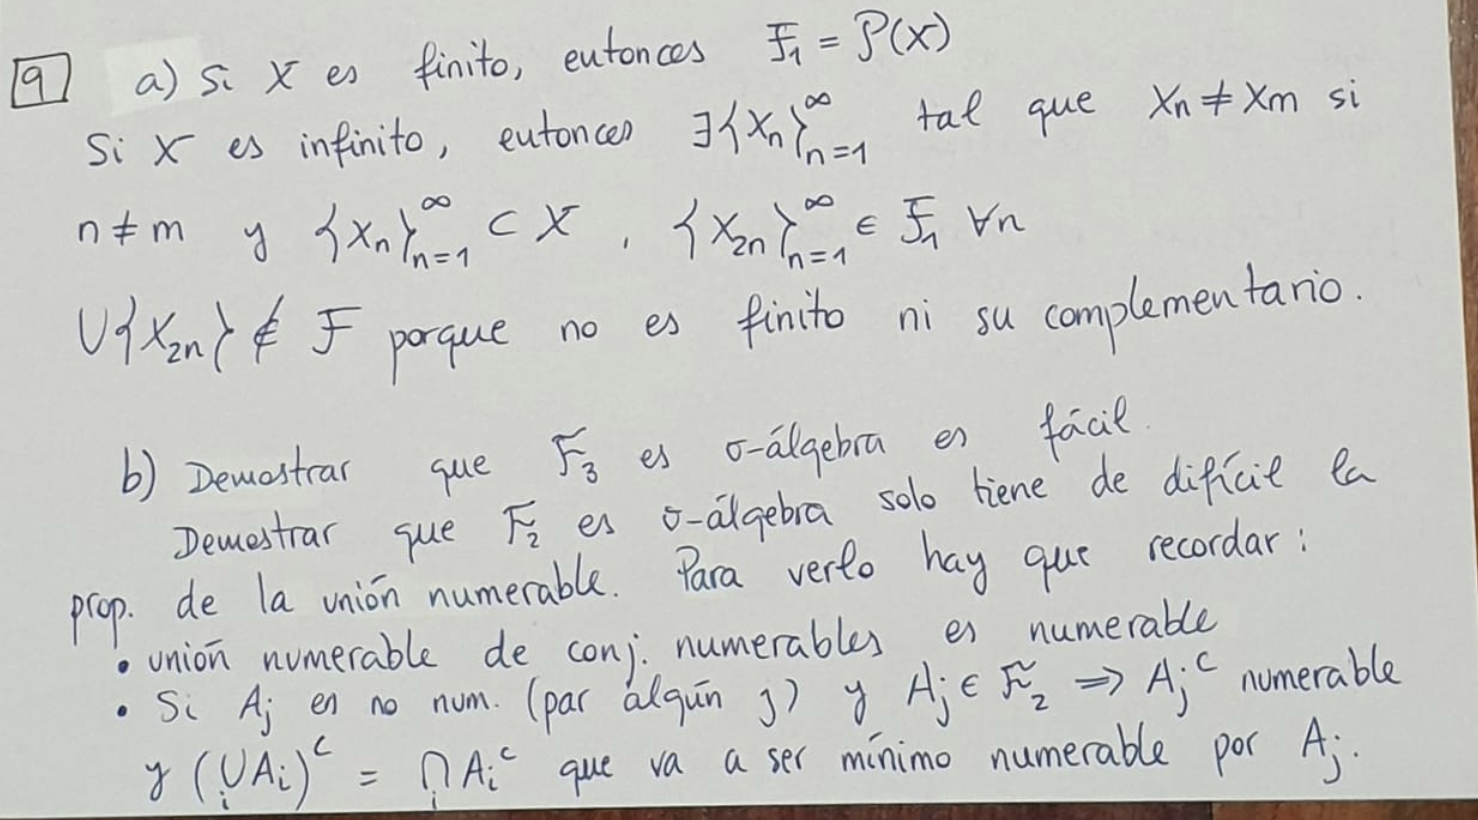 9 a) Si X es finito, entonces F₁ = P(X)
Si X es infinito, entonces ∃{xₙ}ₙ₌₁^∞ tal que xₙ ≠ xₘ si
n ≠ m y {xₙ}ₙ₌₁^∞ ⊂ X, {x₂ₙ}ₙ₌₁^∞ ∈ F₁ ∀n
∪{x₂ₙ} ∉ F porque no es finito ni su complementario.
b) Demostrar que F₃ es σ-álgebra es fácil.
Demostrar que F₂ es σ-álgebra solo tiene de difícil la
prop. de la unión numerable. Para verlo hay que recordar:
• unión numerable de conj. numerables es numerable
• Si Aⱼ es no num. (par algún j) y Aⱼ ∈ F₂ ⇒ Aⱼᶜ numerable
y (∪ᵢAᵢ)ᶜ = ∩ᵢAᵢᶜ que va a ser mínimo numerable por Aⱼ.